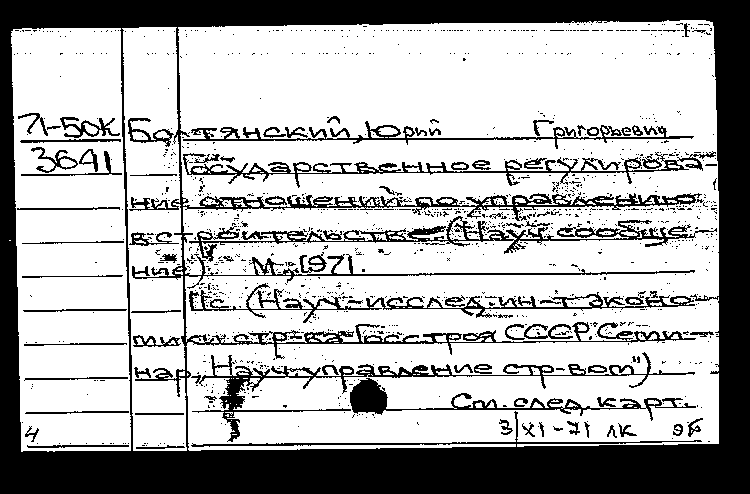 71-50К Болтянский, Юрий Григорьевич
3641 Государственное регулирова-
ние отношений по управлению
в строительстве. (Науч. сообще-
ние). М., 1971.
11с. (Науч.-исслед. ин-т эконо-
мики стр-ва Госстроя СССР. Семи-
нар „Науч. управление стр-вом").
См. след. карт.
4 3/XI-71 ЛК